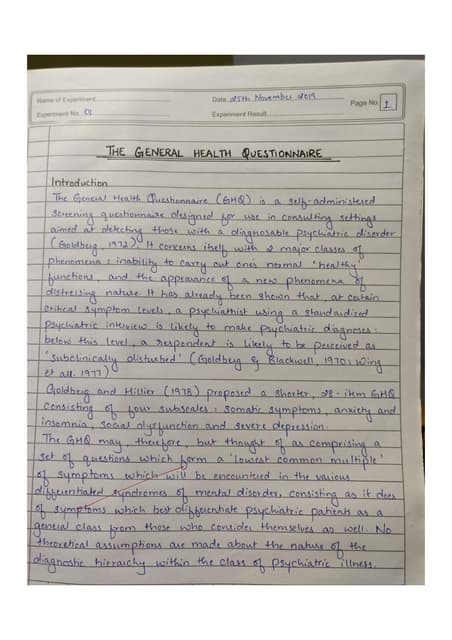 Name of Experiment
Date 25th November 2019
Page No. 1
Experiment No. 01
Experiment Result
THE GENERAL HEALTH QUESTIONNAIRE
Introduction
The General Health Questionnaire (GHQ) is a self-administered
screening questionnaire designed for use in consulting settings
aimed at detecting those with a diagnosable psychiatric disorder
(Goldberg, 1972). It concerns itself with 2 major classes of
phenomena : inability to carry out one's normal "healthy"
functions, and the appearance of a new phenomena of
distressing nature. It has already been shown that, at certain
critical symptom levels, a psychiatrist using a standardized
psychiatric interview is likely to make psychiatric diagnoses :
below this level, a respondent is likely to be perceived as
'subclinically disturbed' (Goldberg & Blackwell, 1970; Wing
et all. 1977)
Goldberg and Hillier (1978) proposed a shorter, 28-item GHQ
consisting of four subscales : somatic symptoms, anxiety and
insomnia, social dysfunction and severe depression.
The GHQ may, therefore, but thought of as comprising a
set of questions which form a 'lowest common multiple'
of symptoms which will be encountered in the various
differentiated syndromes of mental disorder, consisting as it does
of symptoms which best differentiate psychiatric patients as a
general class from those who consider themselves as well. No
theoretical assumptions are made about the nature of the
diagnostic hierarchy within the class of psychiatric illness.